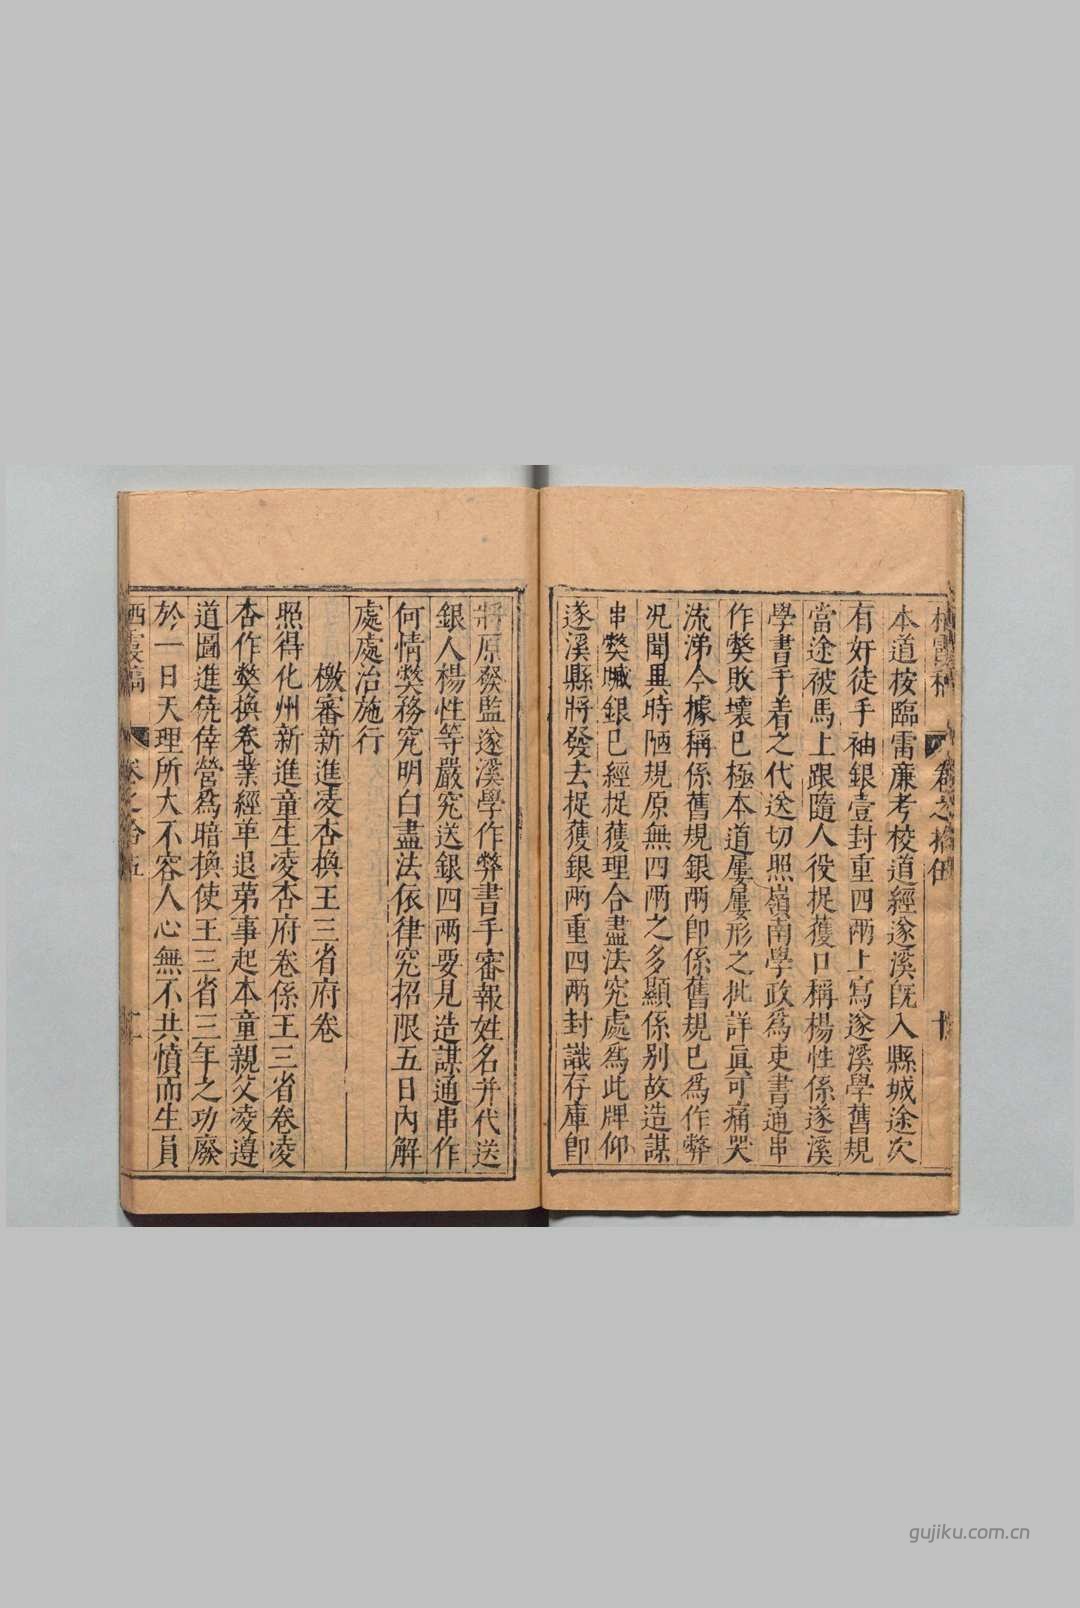 本道按臨雷廉考校道經遂溪旣入縣城途次
有奸徒手袖銀壹封重四兩上寫遂溪學舊規
當途被馬上跟隨人役捉獲口稱楊性係遂溪
學書手着之代送切照嶺南學政爲吏書通串
作獘敗壞已極本道屢屢形之批詳眞可痛哭
流涕今據稱係舊規銀兩卽係舊規已爲作弊
况聞異時陋規原無四兩之多顯係別故造謀
串獘贓銀已經捉獲理合盡法究處爲此牌仰
遂溪縣將發去捉獲銀兩重四兩封識存庫卽
將原發監遂溪學作弊書手審報姓名并代送
銀人楊性等嚴究送銀四兩要見造謀通串作
何情獘務究明白盡法依律究招限五日內解
處處治施行
檄審新進凌杏換王三省府卷
照得化州新進童生凌杏府卷係王三省卷凌
杏作獘換卷業經革退苐事起本童親父凌遵
道圖進僥倖營爲暗換使王三省三年之功廢
於一日天理所大不容人心無不共憤而生員
栖霞稿
卷之拾五
十一